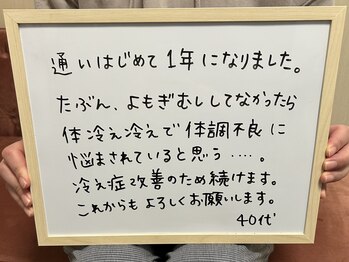 通いはじめて1年になりました。
たぶん、よもぎむししてなかったら
体冷え冷えで体調不良に
悩まされていると思う‥‥。
冷え症改善のため続けます。
これからもよろしくお願いします。
40代